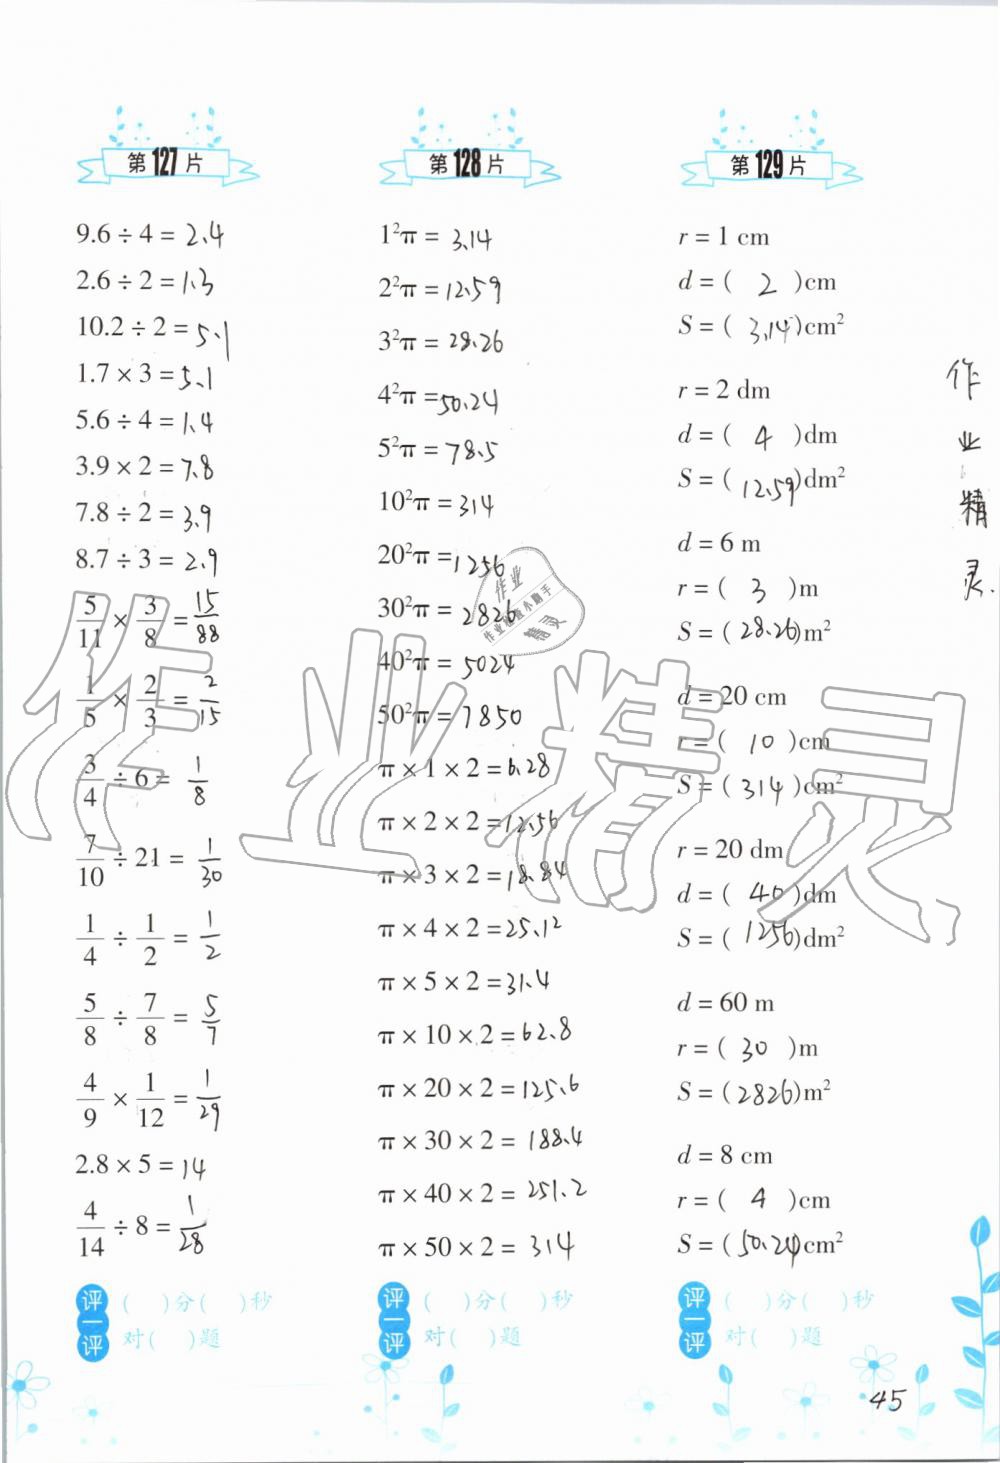 第127片
9.6 ÷ 4 = 2.4
2.6 ÷ 2 = 1.3
10.2 ÷ 2 = 5.1
1.7 × 3 = 5.1
5.6 ÷ 4 = 1.4
3.9 × 2 = 7.8
7.8 ÷ 2 = 3.9
8.7 ÷ 3 = 2.9
5/11 × 3/8 = 15/88
1/5 × 2/3 = 2/15
3/4 ÷ 6 = 1/8
7/10 ÷ 21 = 1/30
1/4 ÷ 1/2 = 1/2
5/8 ÷ 7/8 = 5/7
4/9 × 1/12 = 1/29
2.8 × 5 = 14
4/14 ÷ 8 = 1/28
评一评
( )分( )秒
对( )题
第128片
1²π = 3.14
2²π = 12.59
3²π = 28.26
4²π = 50.24
5²π = 78.5
10²π = 314
20²π = 1256
30²π = 2826
40²π = 5024
50²π = 7850
π × 1 × 2 = 6.28
π × 2 × 2 = 12.56
π × 3 × 2 = 18.84
π × 4 × 2 = 25.12
π × 5 × 2 = 31.4
π × 10 × 2 = 62.8
π × 20 × 2 = 125.6
π × 30 × 2 = 188.4
π × 40 × 2 = 251.2
π × 50 × 2 = 314
评一评
( )分( )秒
对( )题
第129片
r = 1 cm
d = ( 2 )cm
S = ( 3.14 )cm²
r = 2 dm
d = ( 4 )dm
S = ( 12.59 )dm²
d = 6 m
r = ( 3 )m
S = ( 28.26 )m²
d = 20 cm
r = ( 10 )cm
S = ( 314 )cm²
r = 20 dm
d = ( 40 )dm
S = ( 1256 )dm²
d = 60 m
r = ( 30 )m
S = ( 2826 )m²
d = 8 cm
r = ( 4 )cm
S = ( 50.24 )cm²
评一评
( )分( )秒
对( )题
作业精灵
作业精灵
作业
作业检查小助手
精灵
45